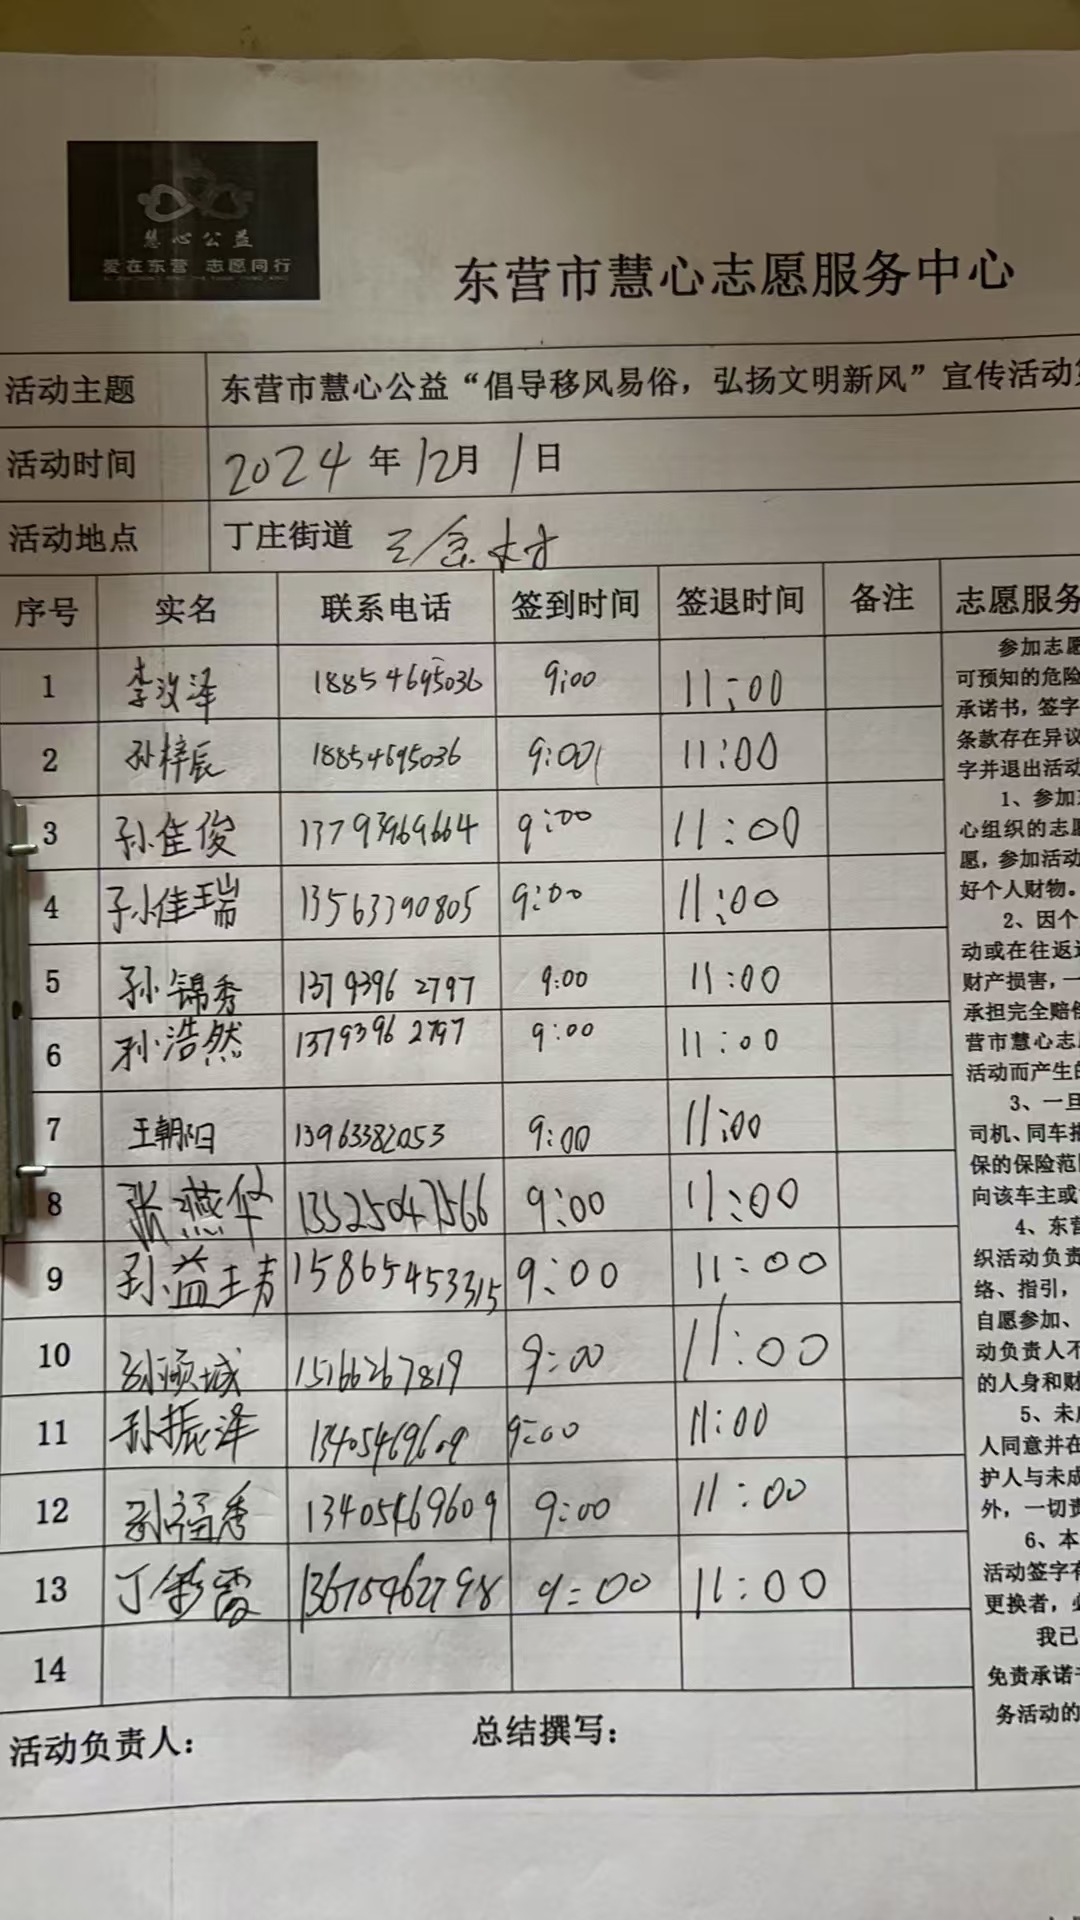 慧心公益
爱在东营 志愿同行
东营市慧心志愿服务中心
活动主题 东营市慧心公益“倡导移风易俗，弘扬文明新风”宣传活动
活动时间 2024年12月1日
活动地点 丁庄街道 三 村
序号 实名 联系电话 签到时间 签退时间 备注 志愿服务
1 李汶泽 18854695036 9:00 11:00
2 孙梓辰 18854695036 9:00 11:00
3 孙佳俊 13793969664 9:00 11:00
4 孙佳瑞 13563390805 9:00 11:00
5 孙锦秀 13793962797 9:00 11:00
6 孙浩然 13793962797 9:00 11:00
7 王朝阳 13963382053 9:00 11:00
8 张燕华 13325047566 9:00 11:00
9 孙益 15865453315 9:00 11:00
10 孙倾城 15166267819 9:00 11:00
11 孙振泽 13405469609 9:00 11:00
12 孙福秀 13405469609 9:00 11:00
13 丁彩霞 13675462798 9:00 11:00
14
参加志愿
可预知的危险
承诺书，签字
条款存在异议
字并退出活动
1、参加
心组织的志愿
愿，参加活动
好个人财物。
2、因个
动或在往返
财产损害，一
承担完全赔偿
营市慧心志
活动而产生的
3、一旦
司机、同车
保的保险范
向该车主或
4、东营
织活动负责
络、指引，
自愿参加、
动负责人不
的人身和财
5、未
人同意并在
护人与未成
外，一切责
6、本
活动签字
更换者，
我已
免责承诺
务活动的
活动负责人： 总结撰写：